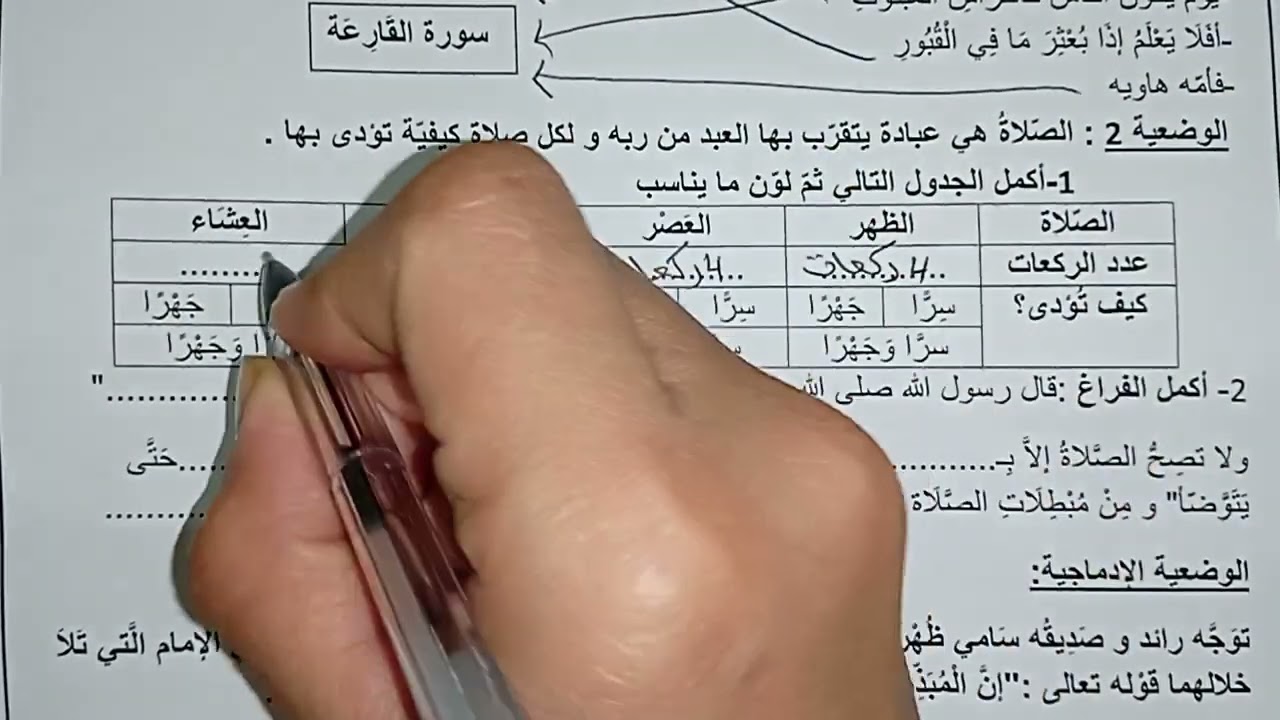 -أَفَلَا يَعْلَمُ إِذَا بُعْثِرَ مَا فِي الْقُبُورِ
سورة القَارِعَة
-فأمّه هاويه
الوضعية 2 : الصّلاةُ هي عبادة يتقرّب بها العبد من ربه و لكل صلاة كيفيّة تؤدى بها .
1-أكمل الجدول التالي ثمّ لوّن ما يناسب
الصّلاة الظهر العَصْر العِشَاء
عدد الركعات ..4.ركعات ..4ركعا ........
كيف تُؤدى؟ سِرًّا جَهْرًا سِرًّا جَهْرًا
سرًّا وَجَهْرًا وَجَهْرًا
2- أكمل الفراغ :قال رسول الله صلى الله ............"
ولا تصِحُّ الصَّلاةُ إلاَّ بِـ........... .....حَتَّى
يَتَوَّضّأ" و مِنْ مُبْطِلَاتِ الصَّلَاة .........
الوضعية الإدماجية:
توَجَّه رائد و صَدِيقُه سَامي الإمام الَّتي تَلاَ
خلالهما قوْله تعالى :"إنَّ